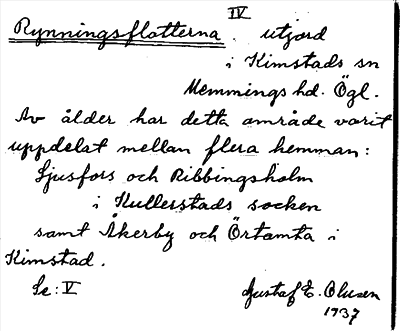 IV
Rynningsflotterna. utjord
i Kimstads sn
Memmings hd. Ögl.
Av ålder har detta område varit
uppdelat mellan flera hemman:
Ljusfors och Ribbingsholm
i Kullerstads socken
samt Åkerby och Örtomta i
Kimstad.
Se: V
Gustaf E. Olsson
1937